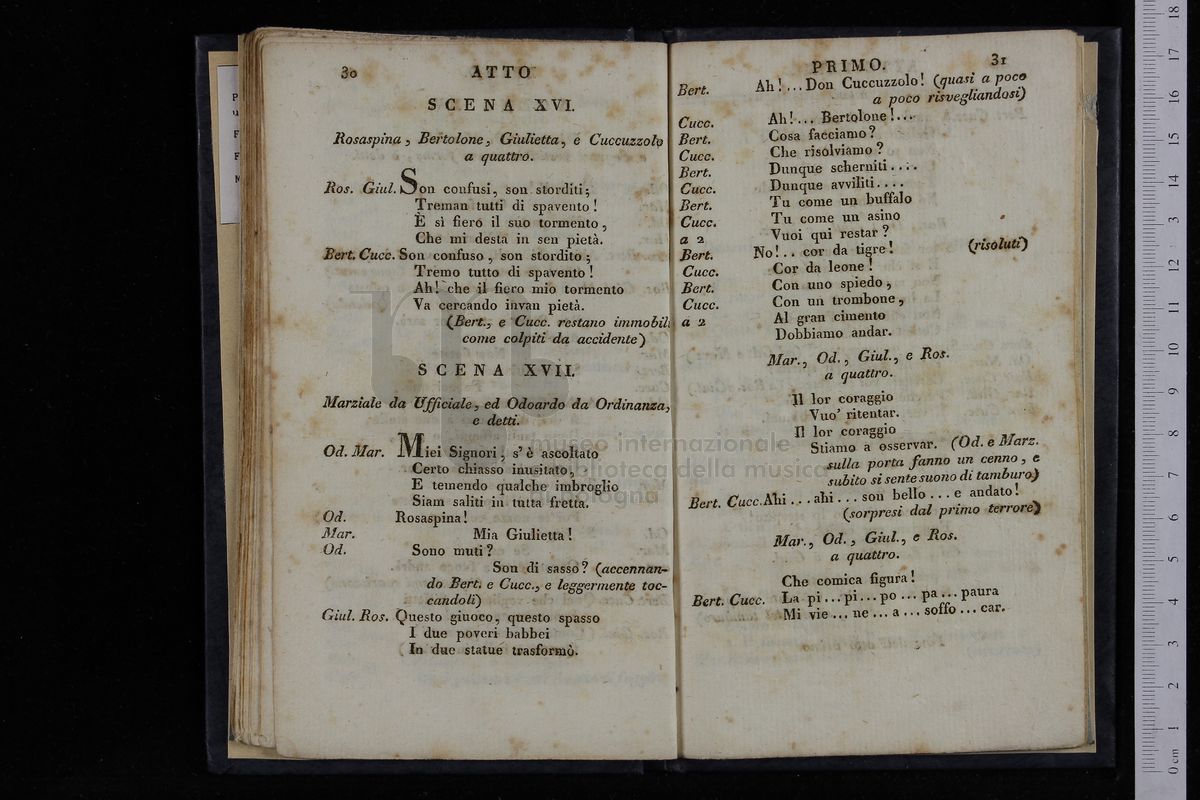 30 ATTO
SCENA XVI.
Rosaspina, Bertolone, Giulietta, e Cuccuzzolo
a quattro.
Ros. Giul. Son confusi, son storditi;
Treman tutti di spavento!
È sì fiero il suo tormento,
Che mi desta in sen pietà.
Bert. Cucc. Son confuso, son stordito;
Tremo tutto di spavento!
Ah! che il fiero mio tormento
Va cercando invan pietà.
(Bert., e Cucc. restano immobili
come colpiti da accidente)
SCENA XVII.
Marziale da Ufficiale, ed Odoardo da Ordinanza,
e detti.
Od. Mar. Miei Signori, s'è ascoltato
Certo chiasso inusitato,
E temendo qualche imbroglio
Siam saliti in tutta fretta.
Od. Rosaspina!
Mar. Mia Giulietta!
Od. Sono muti?
Son di sasso? (accennan-
do Bert. e Cucc., e leggermente toc-
candoli)
Giul. Ros. Questo giuoco, questo spasso
I due poveri babbei
In due statue trasformò.
PRIMO. 31
Bert. Ah!... Don Cuccuzzolo! (quasi a poco
a poco risvegliandosi)
Cucc. Ah!... Bertolone!...
Bert. Cosa facciamo?
Cucc. Che risolviamo?
Bert. Dunque scherniti....
Cucc. Dunque avviliti....
Bert. Tu come un buffalo
Cucc. Tu come un asino
a 2 Vuoi qui restar?
Bert. No!.. cor da tigre! (risoluti)
Cucc. Cor da leone!
Bert. Con uno spiedo,
Cucc. Con un trombone,
a 2 Al gran cimento
Dobbiamo andar.
Mar., Od., Giul., e Ros.
a quattro.
Il lor coraggio
Vuo' ritentar.
Il lor coraggio
Stiamo a osservar. (Od. e Marz.
sulla porta fanno un cenno, e
subito si sente suono di tamburo)
Bert. Cucc. Ahi... ahi... son bello... e andato!
(sorpresi dal primo terrore)
Mar., Od., Giul., e Ros.
a quattro.
Che comica figura!
Bert. Cucc. La pi... pi... po... pa... paura
Mi vie... ne... a... soffo... car.
museo internazionale
biblioteca della musica
di bologna
0 cm 1 2 3 4 5 6 7 8 9 10 11 12 13 14 15 16 17 18